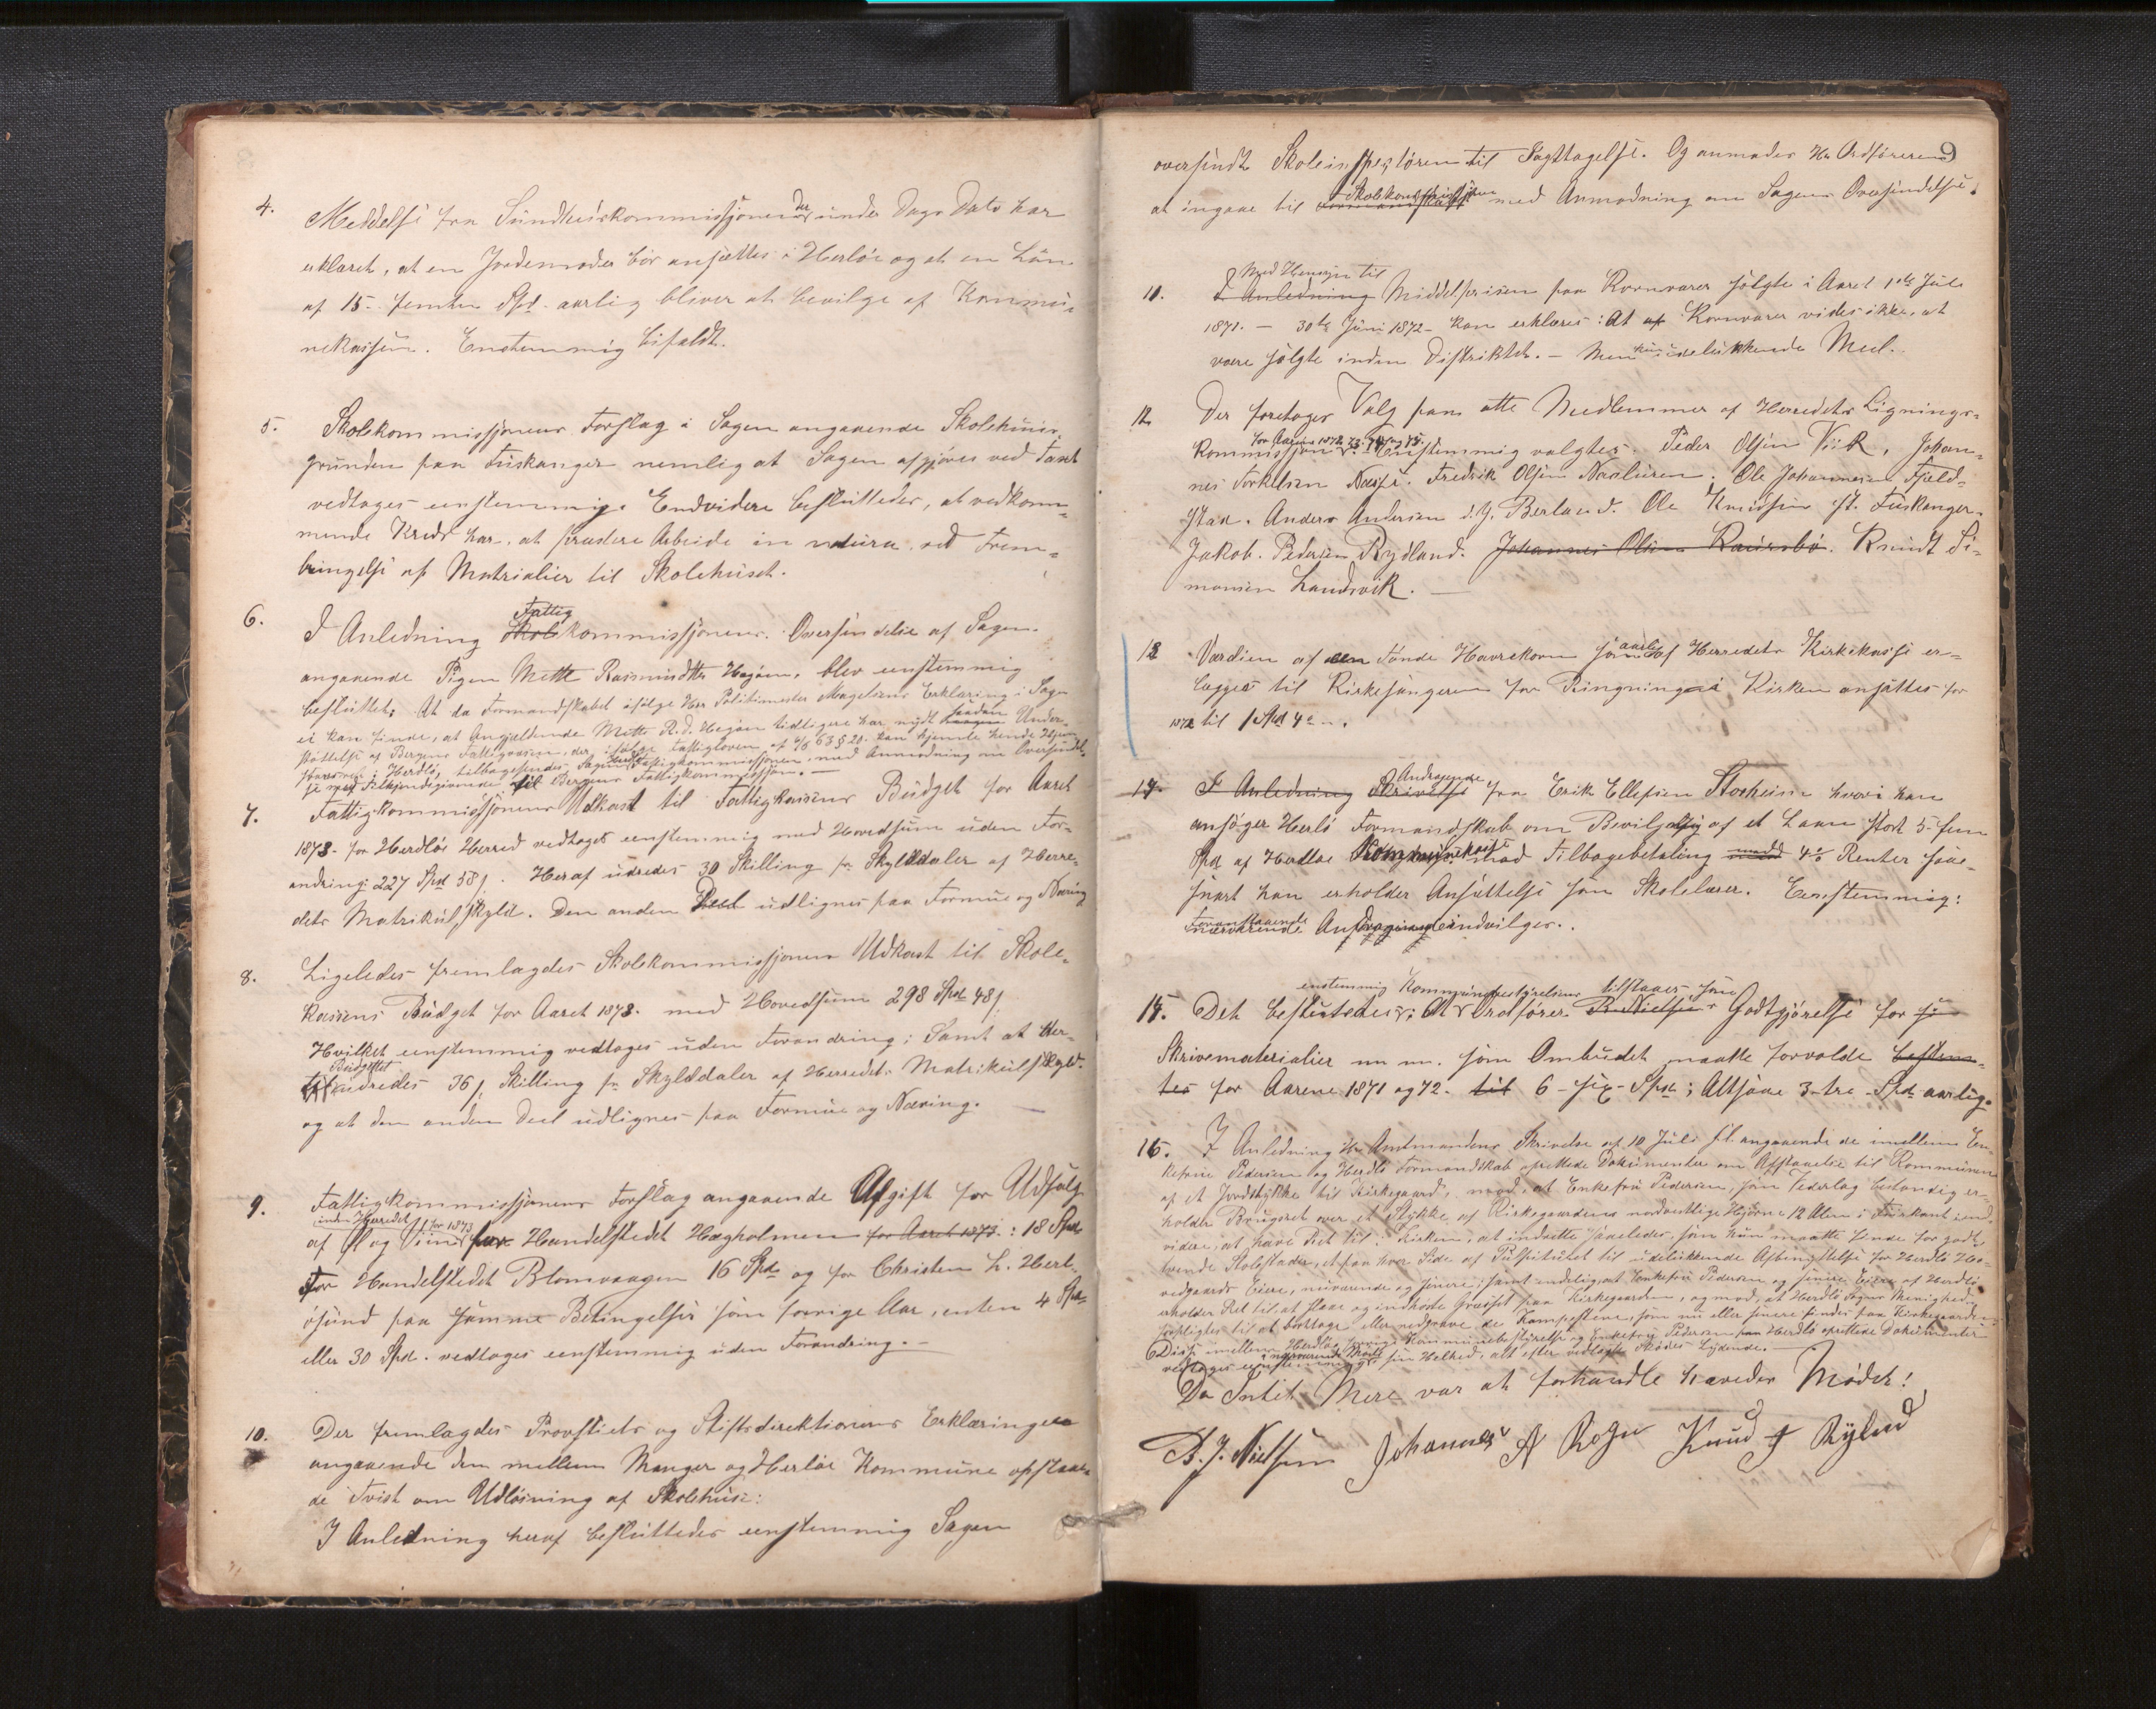 4. Meddelse fra Sundhedskommissjonen der under Dags Dato har
erklæret, at en Jordemoder bör ansættes i Herlöe og at en Lön
af 15 - femten Spd. aarlig bliver at bevilge af Kommu-
nekassen. Enstemmig bifaldt.
5. Skolekommissjonens Forslag i Sagen angaaende Skolehuus-
grunden paa Fuskanger nemlig at Sagen afgjöres ved Taxt
vedtages eenstemmig. Endvidere besluttedes, at vedkom-
mende Kreds har, at præstere Arbeide in natura ved Frem-
bringelse af Matrialier til Skolehuset.
6. I Anledning Fattig kommissjonens Oversendelse af Sagen
angaaende Pigen Mette Rasmusdtter Hagöen, blev eenstemmig
besluttet: At da Formandskabet ifölge Herr Politimester Magelsens Erklæring i Sagen
ei kan finde, at Angjeldende Mette R.d. Hegöen tidligere har nydt saadan Under-
støttelse af Bergens Fattigvæsen, der ifölge Fattigloven af 6/6 63 § 20. kan hjemle hende Hjem-
stavnsret i Herdlö, tilbagesendes Sagen Fattigkommissjonen, med Anmodning om Oversendel-
se med Tilkjendegivende til Bergens Fattigkommissjon. —
7. Fattigkommissjonens Udkast til Fattigkassens Budget for Aaret
1873 - for Herdlöe Herred vedtages eenstemmig med Hovedsum uden For-
andring 227 Spd 58 ẞ. Heraf udredes 30 Skilling pr Skylddaler af Herre-
dets Matrikulskyld. Den anden Deel udlignes paa Formue og Næring
8. Ligeledes fremlagdes Skolekommissjonens Udkast til Skole-
kassens Budget for Aaret 1873. med Hovedsum 298 Spd 48 ẞ
Hvilket eenstemmig vedtages uden Forandring; Samt at der
til Budgettet udredes 36 ẞ Skilling pr Skylddaler af Herredets Matrikulskyld.
og at den anden Deel udlignes paa Formue og Næring.
9. Fattigkommissjonens Forslag angaaende Afgift for Udsalg
inden Herredet for 1873
af Öl og Viin for Handelstedet Hægholmen for Aaret 1873.: 18 Spd
For Handelstedet Blomvaagen 16 Spd og for Christen L. Herl-
ösund paa samme Betingelser som forrige Aar, enten 4 Spd
eller 30 Spd. vedtages eenstemmig uden Forandring. —
10. Der fremlagdes Provstiets og Stiftsdirektionens Erklæringer
angaaende den mellem Manger og Herlöe Kommune opstaae-
de Tvist om Udlösning af Skolehuse:
I Anledning heraf besluttedes eenstemmig Sagen
9
oversendt Skoleinspektören til Iagttagelse. Og anmodes Hr Ordföreren
at ingaae til Skolekommissjonen med Anmodning om Sagens Oversendelse.
Med Hensyn til
11. I Anledning Middelprisen paa Kornvarer solgte i Aaret 1ste Juli
1871. — 30te Juni 1872 - kan erklæres: At af Kornvarer vides ikke, at
være solgte inden Distriktet. — Men kun udelukkende Meel.
12. Der foretages Valg paa otte Medlemmer af Herredets Lignings-
for Aarene 1872, 73. 74 og 75.
kommissjon. Eenstemmig valgtes: Peder Olsen Viik, Johan-
nes Torkelsen Næsse. Fredrik Olsen Nordeuren. Ole Johannesen Fjeld-
stad. Anders Andersen d.y. Berland. Ole Knudsen st. Fuskanger.
Jakob Pedersen Rydland. Johannes Olsen Kaursbö. Knudt Si-
monsen Landsvik. —
13 Værdien af een Tönde Havrekorn som aarlig af Herredets Kirkekasse er-
lægges til Kirkesangeren for Ringningen i Kirken ansættes for
1872 til 1 Spd 4 .
14. I Anledning Skrivelse Andragende fra Erik Ellefsen Storheim hvori han
ansöger Herlö Formandskab om Beviljelse af et Laan stort 5 - fem
Spd af Herdlöe Kommunekasse mod Tilbagebetaling med 4 % Renter saa-
snart han erholder Ansættelse som Skolelærer. Eenstemmig:
Foranstaaende nærværende Andragende indvilges.
enstemmig Kommunebestyrelsen tilstaaer som
15. Det besluttedes: At Ordförer B. Nielsen Godtgjörelse for
Skrivematerialier m. m. som Ombudet maatte forvolde bestem-
tes for Aarene 1871 og 72. til 6 - sex - Spd; Altsaa 3 - tre - Spd aarlig.
16. I Anledning Hr Amtmandens Skrivelse af 10 Juli d.A. angaaende de imellem En-
kefrue Pedersen og Herdlö Formandskab oprettede Dokumenter om Afstaaelse til Kommunen
af et Jordstykke til Kirkegaard, mod, at Enkefru Pedersen, som Vederlag bestandig er-
holder Brugsret over et Stykke af Kirkegaardens nordvestlige Hjörne 12 Alen i Fiirkant; end-
videre, at have Ret til i Kirken, at indrette saaledes, som hun maatte finde for godt,
tvende Stolestader, et paa hver Side af Pulpituret til udelukkende Afbenyttelse for Herdlö Ho-
vedgaards Eiere, nuværende og senere; samt endelig, at Enkefru Pedersen og senere Eiere af Herdlö
erholder Ret til, at slaae og indhöste Græsset paa Kirkegaarden, og mod, at Herdlö Sogns Menighed
forpligtes til at borttage eller nedgrave de Kampestene, som nu eller senere findes paa Kirkegaarden.
Disse mellem Herdlö Kommunebestyrelse og Enkefru Pedersen paa Herdlö oprettede Dokumenter
vedtages eenstemmig i sin Helhed, alt efter vedlagte Sködes Lydende. —
Da Intet Mere var at forhandle hævedes Mödet!
B. J. Nielsen Johannes A Rogn Knud J Ryland